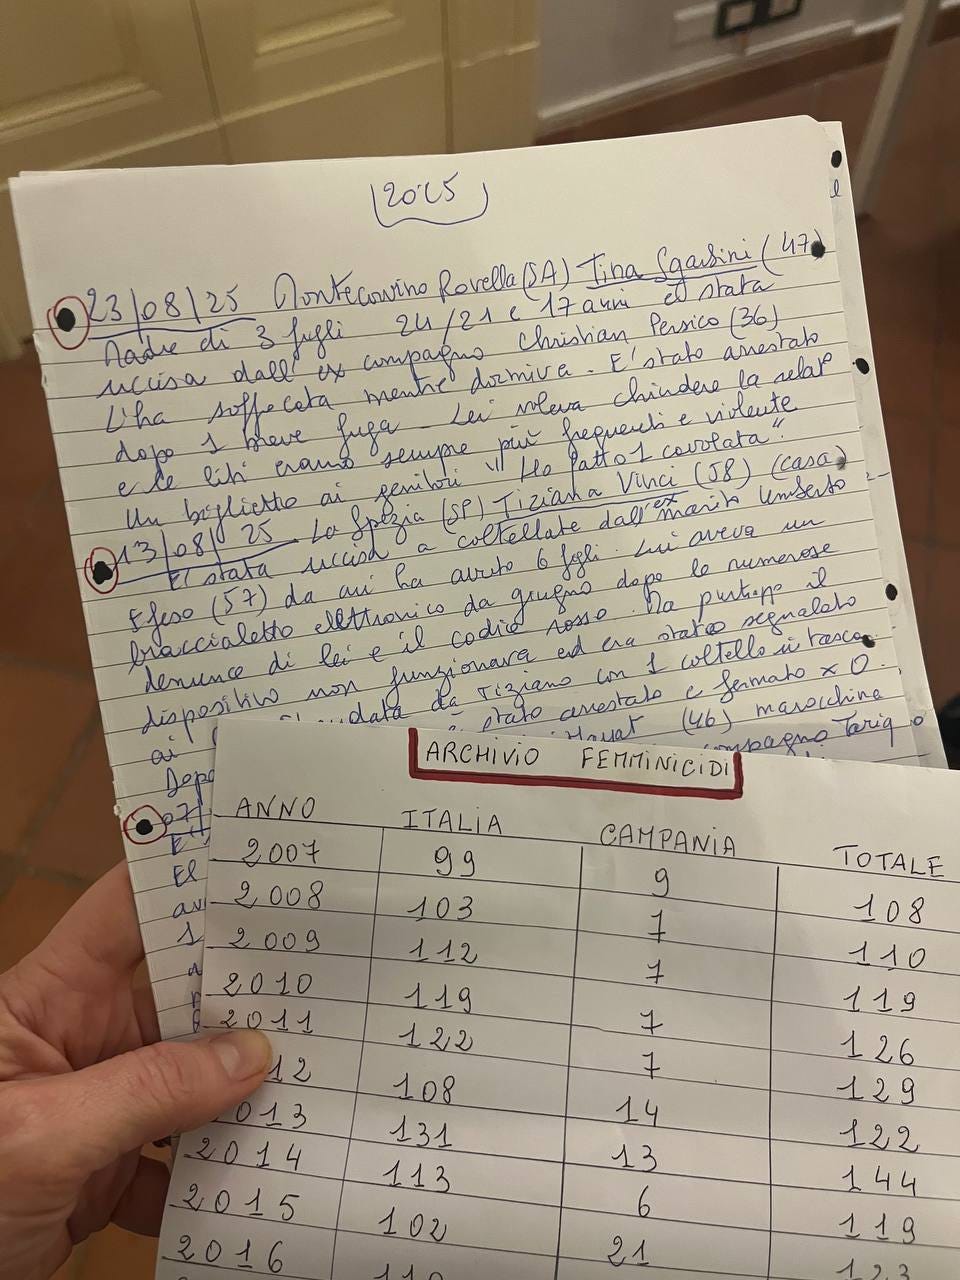 2025
23/08/25 Montecorvino Rovella (SA) Tina Sgarbini (47)
Madre di 3 figli 24/21 e 17 anni è stata
uccisa dall'ex compagno Christian Persico (36)
L'ha soffocata mentre dormiva. E' stato arrestato
dopo 1 breve fuga. Lei voleva chiudere la relaz
e le liti erano sempre più frequenti e violente
Un biglietto ai genitori "Ho fatto 1 cavolata".
13/08/25 La Spezia (SP) Tiziana Vinci (58) (casa)
E' stata uccisa a coltellate dall'ex marito Umberto
Efeso (57) da cui ha avuto 6 figli. Lui aveva un
braccialetto elettronico da giugno dopo le numerose
denunce di lei e il codice rosso. Ma purtropp il
dispositivo non funzionava ed era stato segnalato
ai data da Tiziana con 1 coltello in tasca
Dopo stato arrestato e fermato x O.
07/ Hayat (46) marocchina
E' compagno Tariq
El
av
1
ARCHIVIO FEMMINICIDI
ANNO ITALIA CAMPANIA TOTALE
2007 99 9 108
2008 103 7 110
2009 112 7 119
2010 119 7 126
2011 122 7 129
12 108 14 122
2013 131 13 144
2014 113 6 119
2015 102 21 123
2016